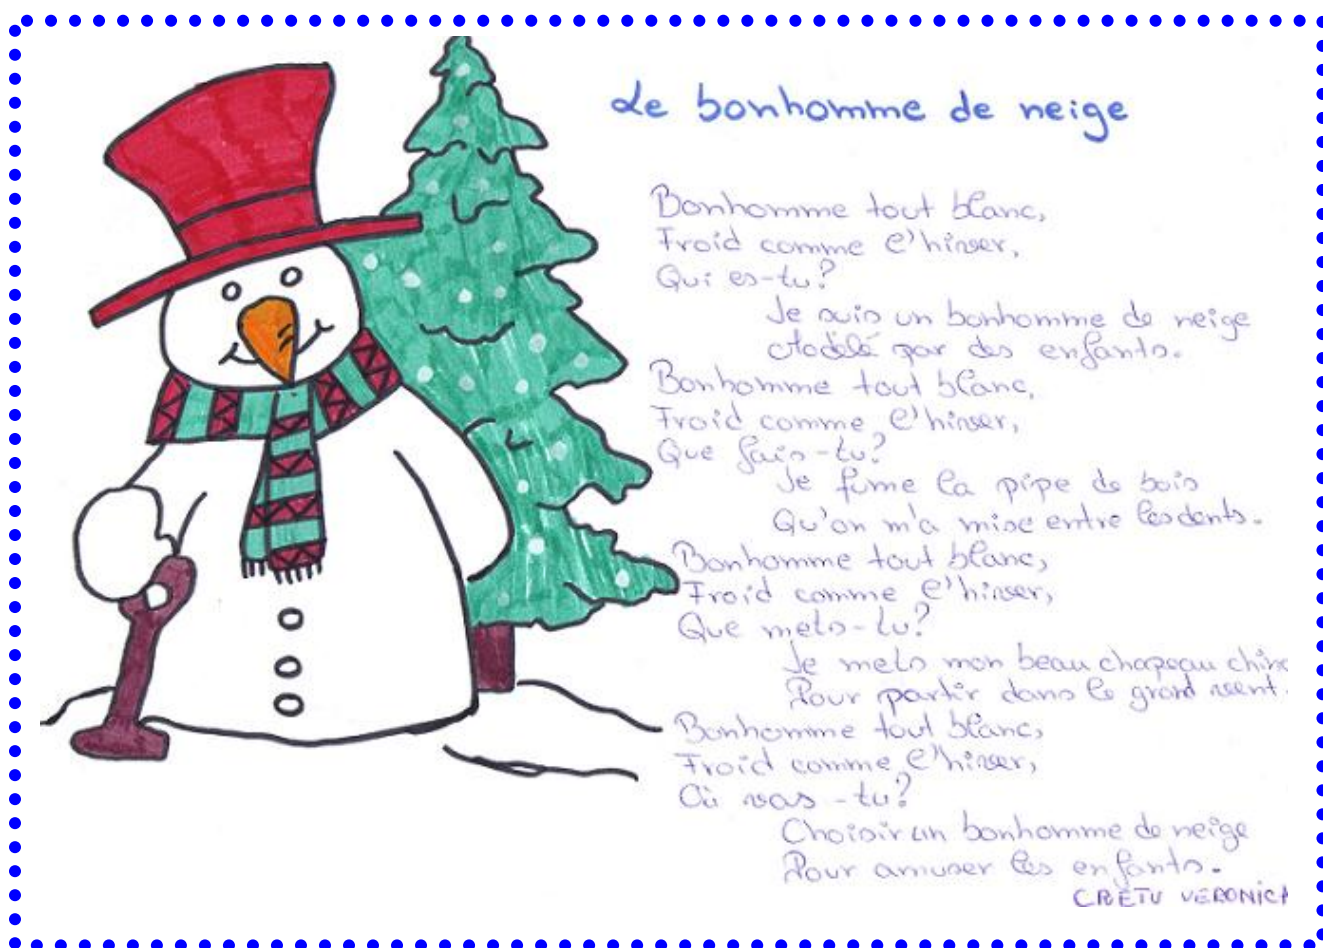 Le bonhomme de neige
Bonhomme tout blanc,
Froid comme l'hiver,
Qui es-tu?
Je suis un bonhomme de neige
Modelé par des enfants.
Bonhomme tout blanc,
Froid comme l'hiver,
Que fais-tu?
Je fume la pipe de bois
Qu'on m'a mise entre les dents.
Bonhomme tout blanc,
Froid comme l'hiver,
Que mets-tu?
Je mets mon beau chapeau
Pour partir dans le grand vent.
Bonhomme tout blanc,
Froid comme l'hiver,
Où vas-tu?
Choisir un bonhomme de neige
Pour amuser les enfants.
CREȚU VERONICA